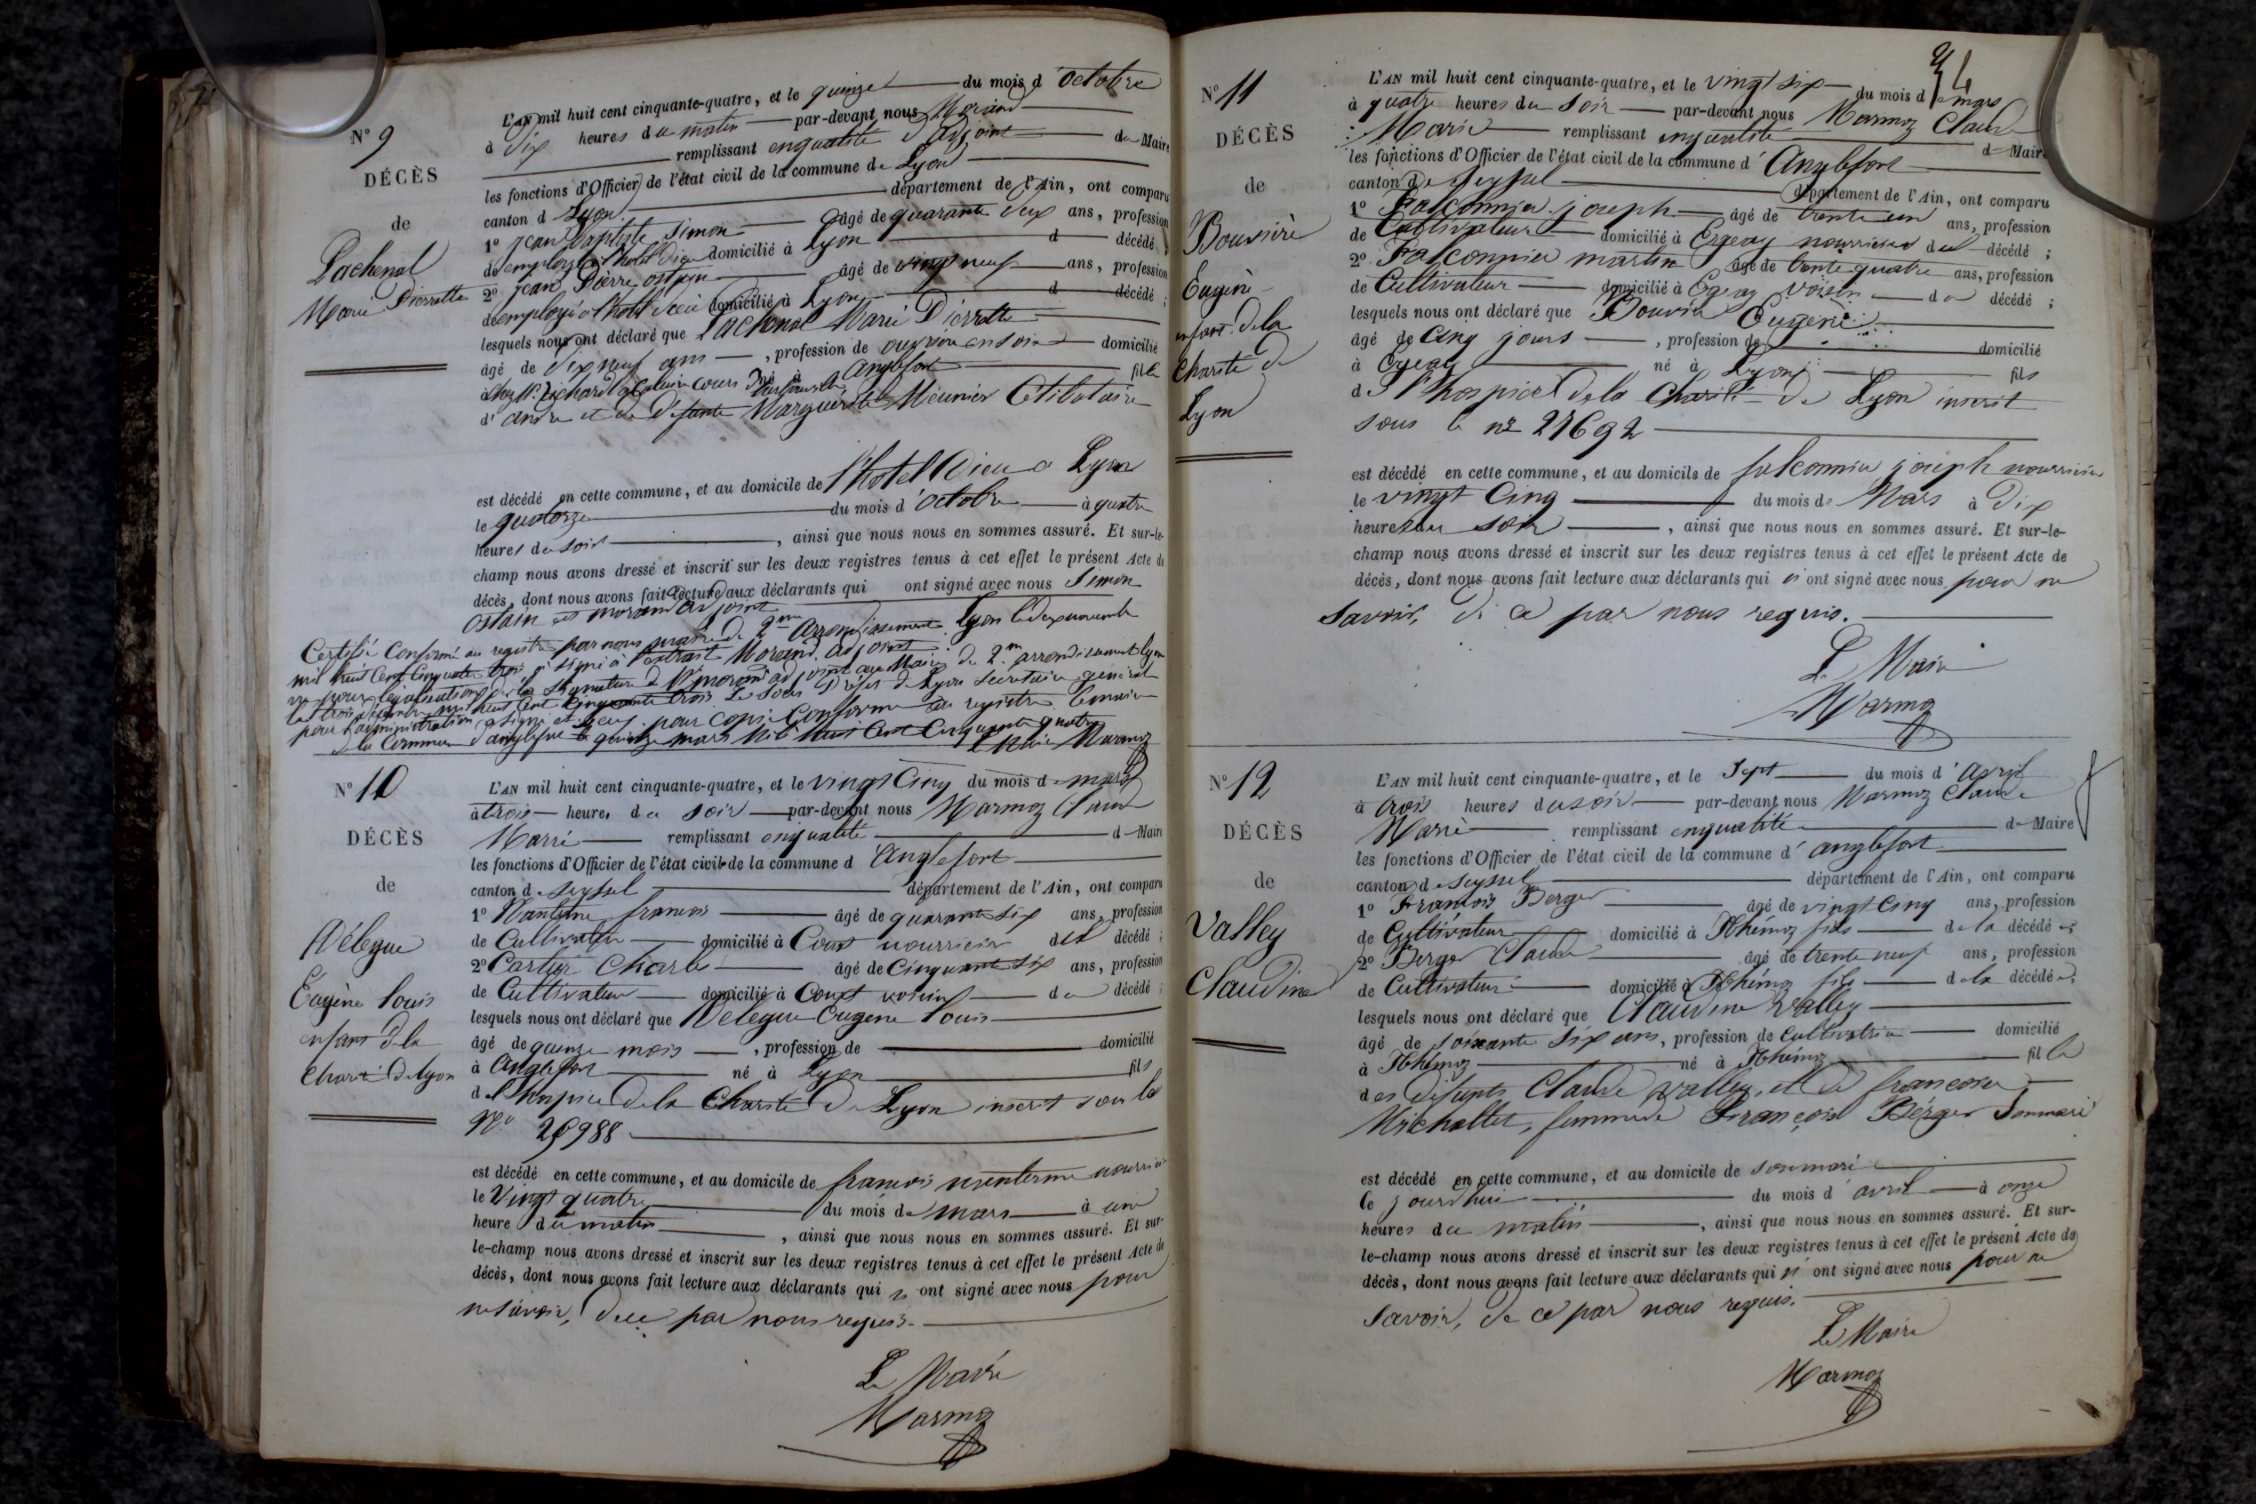 N° 9
DÉCÈS
de
Lachenal
Marie Pierrette
L'AN mil huit cent cinquante-quatre, et le quinze du mois d'octobre
à dix heures du matin par-devant nous Morand
remplissant en qualité d'adjoint de Maire
les fonctions d'Officier de l'état civil de la commune de Lyon
canton d Lyon département de l'Ain, ont comparu
1° jean Baptiste Simon âgé de quarante deux ans, profession
de employé à l'hotel Dieu domicilié à Lyon d décédé ;
2° jean Pierre ostain âgé de vingt neuf ans, profession
de employé à l'hotel dieu domicilié à Lyon d décédé ;
lesquels nous ont déclaré que Lachenal Marie Pierrette
âgé de dix neuf ans , profession de ouvrière en soie domicilié
à chez Mr Richard cours né à anglefort fille
d'andré et de défunte Marguerite Meunier Célibataire
est décédé en cette commune, et au domicile de l'hotel Dieu a Lyon
le quatorze du mois d'octobre à quatre
heures du soir , ainsi que nous nous en sommes assuré. Et sur-le-
champ nous avons dressé et inscrit sur les deux registres tenus à cet effet le présent Acte de
décès, dont nous avons fait lecture aux déclarants qui ont signé avec nous Simon
ostain et morand adjoint
Certifié Conforme au registre par nous maire du 2me arrondissement Lyon le deux novembre
mil huit cent cinquante trois, signé à l'extrait Morand adjoint
vu pour légalisation de la signature de Mr morand adjoint au Maire du 2me arrondissement Lyon
le trois mil huit cent cinquante trois Le Sous Préfet de Lyon secrétaire général
pour l'administration signé et pour copie Conforme au registre
de la Commune d'anglefort le quinze mars mil huit cent Cinquante quatre
Le Maire Marmoz
N° 10
DÉCÈS
de
Vélegue
Eugène Louis
enfant de la
Charité de Lyon
L'AN mil huit cent cinquante-quatre, et le vingt Cinq du mois de mars
à trois heures du soir par-devant nous Marmoz Claude
Marie remplissant en qualité de Maire
les fonctions d'Officier de l'état civil de la commune d'Anglefort
canton de seyssel département de l'Ain, ont comparu
1° françois âgé de quarante six ans, profession
de Cultivateur domicilié à nourricier du décédé ;
2° Cartier Charles âgé de Cinquante six ans, profession
de Cultivateur domicilié à voisin du décédé ;
lesquels nous ont déclaré que Vélegue Eugene Louis
âgé de quinze mois , profession de domicilié
à Anglefort né à Lyon fils
de l'hospice de la Charité de Lyon inscrit sous le
N° 25988
est décédé en cette commune, et au domicile de françois nourricier
le Vingt quatre du mois de mars à une
heure du matin , ainsi que nous nous en sommes assuré. Et sur-
le-champ nous avons dressé et inscrit sur les deux registres tenus à cet effet le présent Acte de
décès, dont nous avons fait lecture aux déclarants qui n'ont signé avec nous pour
ne savoir, de ce par nous requis.
Le Maire
Marmoz
24
N° 11
DÉCÈS
de
Bouvière
Eugène
enfant de la
Charité de
Lyon
L'AN mil huit cent cinquante-quatre, et le vingt six du mois de mars
à quatre heures du soir par-devant nous Marmoz Claude
Marie remplissant en qualité de Maire
les fonctions d'Officier de l'état civil de la commune d'Anglefort
canton de Seyssel département de l'Ain, ont comparu
1° Falconnier joseph âgé de trente un ans, profession
de Cultivateur domicilié à nourricier du décédé ;
2° Falconnier martin âgé de trente quatre ans, profession
de Cultivateur domicilié à voisin du décédé ;
lesquels nous ont déclaré que Bouvière Eugène
âgé de cinq jours , profession de domicilié
à né à Lyon fils
de l'hospice de la Charité de Lyon inscrit
sous le n° 27692
est décédé en cette commune, et au domicile de falconnier joseph nourricier
le vingt Cinq du mois de Mars à dix
heures du soir , ainsi que nous nous en sommes assuré. Et sur-le-
champ nous avons dressé et inscrit sur les deux registres tenus à cet effet le présent Acte de
décès, dont nous avons fait lecture aux déclarants qui n'ont signé avec nous pour ne
savoir, de ce par nous requis.
Le Maire
Marmoz
N° 12
DÉCÈS
de
Valley
Claudine
L'AN mil huit cent cinquante-quatre, et le sept du mois d'avril
à trois heures du soir par-devant nous Marmoz Claude
Marie remplissant en qualité de Maire
les fonctions d'Officier de l'état civil de la commune d'anglefort
canton de seyssel département de l'Ain, ont comparu
1° François Berger âgé de vingt Cinq ans, profession
de Cultivateur domicilié à Thémoz fils de la décédée ;
2° Berger Claude âgé de trente neuf ans, profession
de Cultivateur domicilié à Thémoz fils de la décédée ;
lesquels nous ont déclaré que Claudine Valley
âgé de soixante six ans, profession de cultivatrice domicilié
à Thémoz né à Thémoz fille
des défunts Claude Valley et de françoise
Michallet, femme de François Berger son mari
est décédé en cette commune, et au domicile de son mari
le jourd'hui du mois d'avril à onze
heures du matin , ainsi que nous nous en sommes assuré. Et sur-
le-champ nous avons dressé et inscrit sur les deux registres tenus à cet effet le présent Acte de
décès, dont nous avons fait lecture aux déclarants qui n'ont signé avec nous pour ne
savoir, de ce par nous requis.
Le Maire
Marmoz